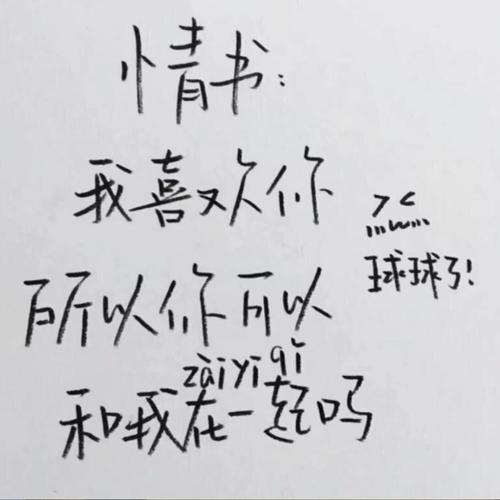 情书:
我喜欢你
所以你可以
zài yì qǐ
和我在一起吗
> <
...w...
球球了!